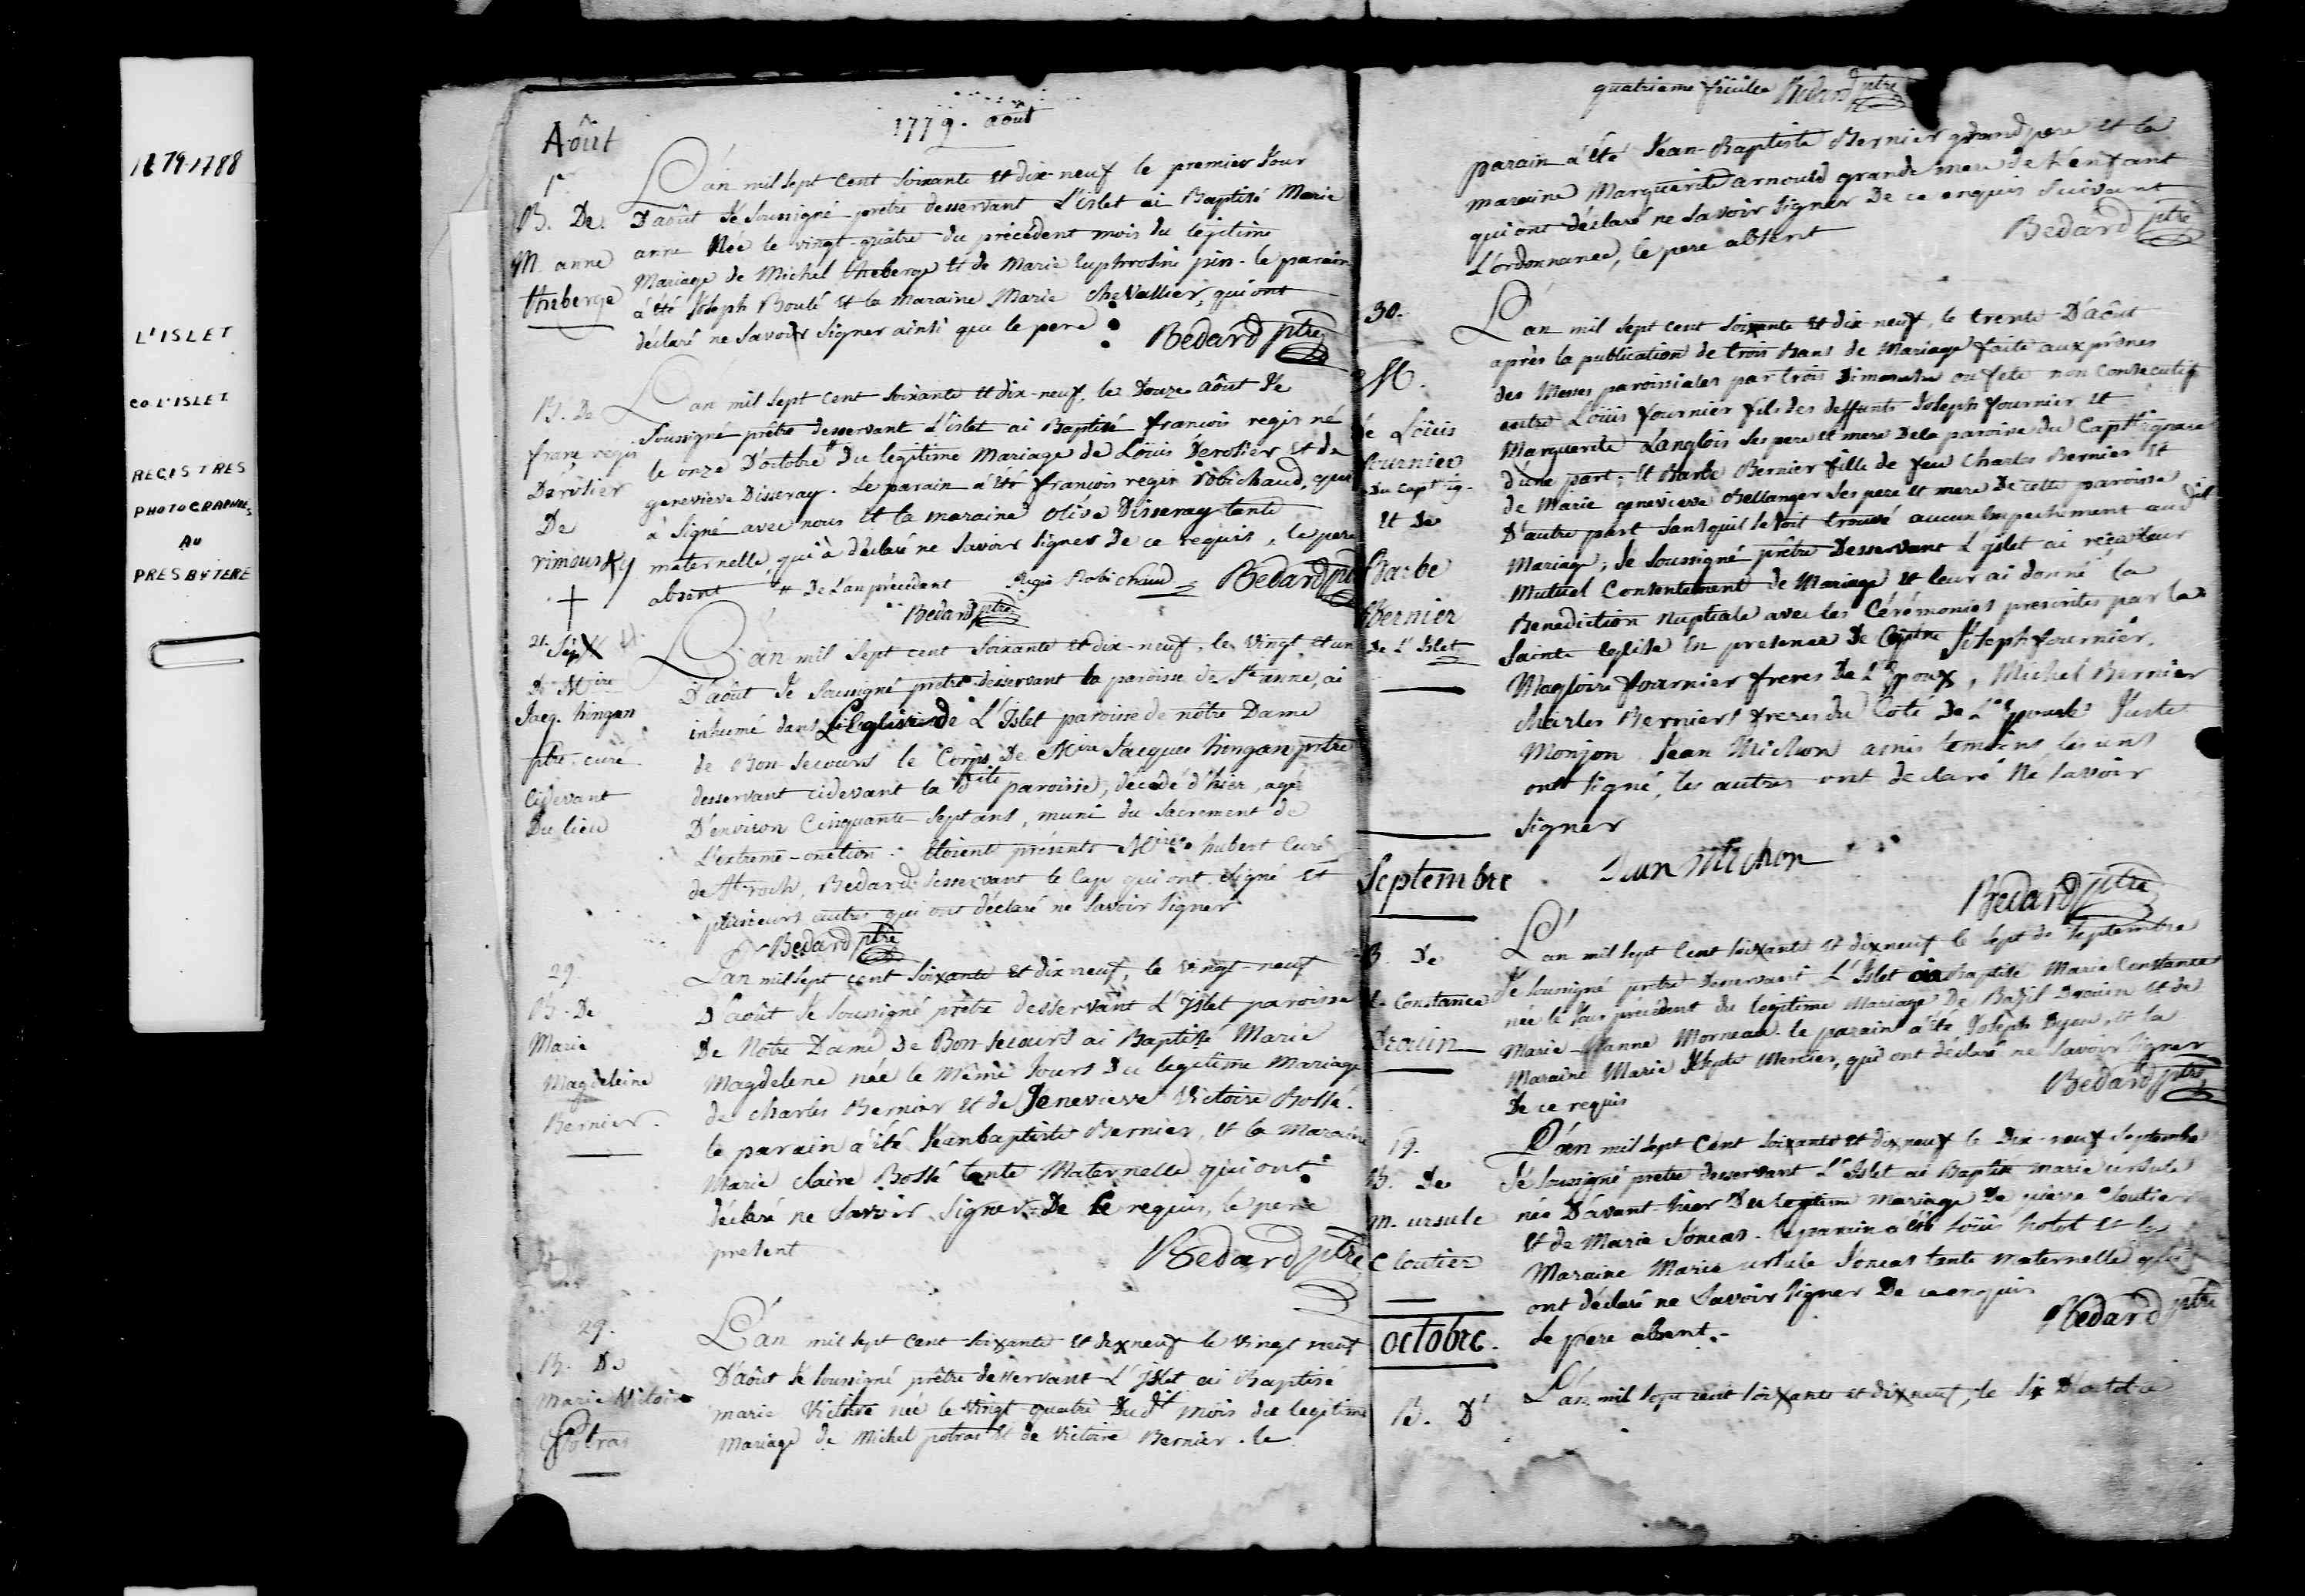 1679-1788
L'ISLET
CO. L'ISLET
REGISTRES
PHOTOGRAPHIÉS
AU
PRESBYTERE
Août
1779. août
1er
B. De
M. anne
theberge
L'án mil sept cent soixante et dix-neuf le premier Jour
D'août Je soussigné prêtre desservant L'islet ai Baptisé Marie
anne Née le vingt-quatre du précédent mois du légitime
Mariage de Michel theberge et de Marie Euphrosine pin. le parain
a été Joseph Boulé et la maraine Marie cheVallier, qui ont
déclaré ne Savoir Signer ainsi que le pere
Bedard ptre
B. De
franç regis
Dérôtier
De
rimousky
L'an mil sept cent soixante et dix-neuf, le Douze août Je
Soussigné prêtre desservant L'islet ai Baptisé francois regis né
le onze D'octobre # Du legitime Mariage de Loüis Derotier et de
genevieve Disseray. Le parain a été francois regis robichaud, qui
à signé avec nous et la maraine Olive Disseray tante
maternelle, qui à déclaré ne savoir signer de ce requis, le pere
absent # De L'an précédent Regis Robichaud Bedard ptre
Bedard ptre
21. Sep
De Mire
Jacq. hingan
ptre. curé
Cidevant
Du lieu
L'án mil sept cent soixante et dix-neuf, le vingt et un
D'août Je soussigné prêtre desservant la paroisse de Ste anne, ai
inhumé dans L'Eglise de L'Islet paroisse de nôtre Dame
de Bon-Secours le Corps De Mire Jacques hingan prtre
desservant cidevant la dite paroisse, décédé d'hier, agé
D'environ Cinquante-Sept ans, muni du Sacrement de
L'extreme-onction. Etoient présents Mires hubert Curé
de St roch, Bedard desservant le Cap qui ont Signé et
plusieurs autres qui ont déclaré ne savoir signer
Bedard ptre
29.
B. De
Marie
Magdeleine
Bernier.
L'an mil sept cent soixante et dix neuf, le vingt-neuf
D'août Je soussigné prêtre desservant L'Jslet paroisse
De Notre Dame De Bon-Secours ai Baptisé Marie
Magdelene née le même Jours Du legitime Mariage
de charles Bernier et de Jenevieve Victoire Bossé.
le parain a été Jeanbaptiste Bernier, et la Maraine
Marie Claire Bossé tante Maternelle qui ont
déclaré ne savoir signer De Ce requis, le pere
present
Bedard ptre
29.
B. De
Marie Vitoire
Potras
L'án mil sept cent soixante et dix neuf le vingt neuf
D'août Je soussigné prêtre desservant L'Jslet ai Baptisé
marie Victoire née le vingt quatre Dudt mois du legitime
Mariage de Michel potras et de Victoire Bernier. le
quatrieme feuille Bedard ptre
parain a été Jean-Baptiste Bernier grand pere et la
maraine Marguerite arnould grande mere de L'enfant
qui ont déclaré ne savoir signer De ce enquis suivant
L'ordonnance, le pere absent
Bedard ptre
30.
M.
de Loüis
fournier
Du Capt ig-
et De
Barbe
Bernier
De L'Islet
L'án mil sept cent soixante et dix neuf, le trente D'août
après la publication de trois Bans de Mariage faite aux prônes
des Messes paroissiales par trois Dimanche ou fete non Consecutif
entre Loüis fournier fils des deffunts Joseph fournier et
Marguerite Langlois ses pere et mere De la paroisse du Capt ignace
d'une part; et Barbe Bernier fille de feu Charles Bernier et
de Marie genevieve Bellanger ses pere et mere De cette paroisse
D'autre part sans qu'il se soit trouvé aucun Empechement audit
Mariage, Je soussigné prêtre Desservant L'Jslet ai reçu leur
Mutuel Consentement de Mariage et leur ai donné la
Benediction nuptiale avec les Cérémonies prescrites par la
Sainte Eglise En presence De Joseph fournier,
Magloire fournier freres De L'Epoux, Michel Bernier
charles Berniers freres du Coté De L'Epouse Juste
Monjon Jean Michon amis temoins les uns
ont signé, les autres ont declaré Né savoir
signer
Jean Michon
Bedard ptre
Septembre
B. De
M. Constance
Drouin
L'an mil sept Cent soixante et dix neuf le sept de septembre
Je soussigné pretre Desservant L'Islet ai Baptisé Marie Constance
née le Jour précédent du legitime Mariage De Bazil Drouin et de
Marie-Anne Morneau. le parain a été Joseph Dyon, et la
Maraine Marie Mercier, qui ont déclaré ne savoir signer
De ce requis
Bedard ptre
19.
B. De
M. ursule
Cloutier
L'án mil sept Cent soixante et dix neuf le Dix-neuf Septembre
Je soussigné pretre desservant L'Islet ai Baptisé marie ursule
née D'avant-hier Du legitime Mariage De pierre Cloutier
et de Marie Joncas. le parain a été Loüis holot et la
Maraine Marie ursule Joncas tante maternelle qui
ont déclaré ne savoir signer De ce enquis
le pere absent.-
Bedard ptre
octobre.
B. D'
L'án mil sept cent soixante et dix neuf, le six D'octobre